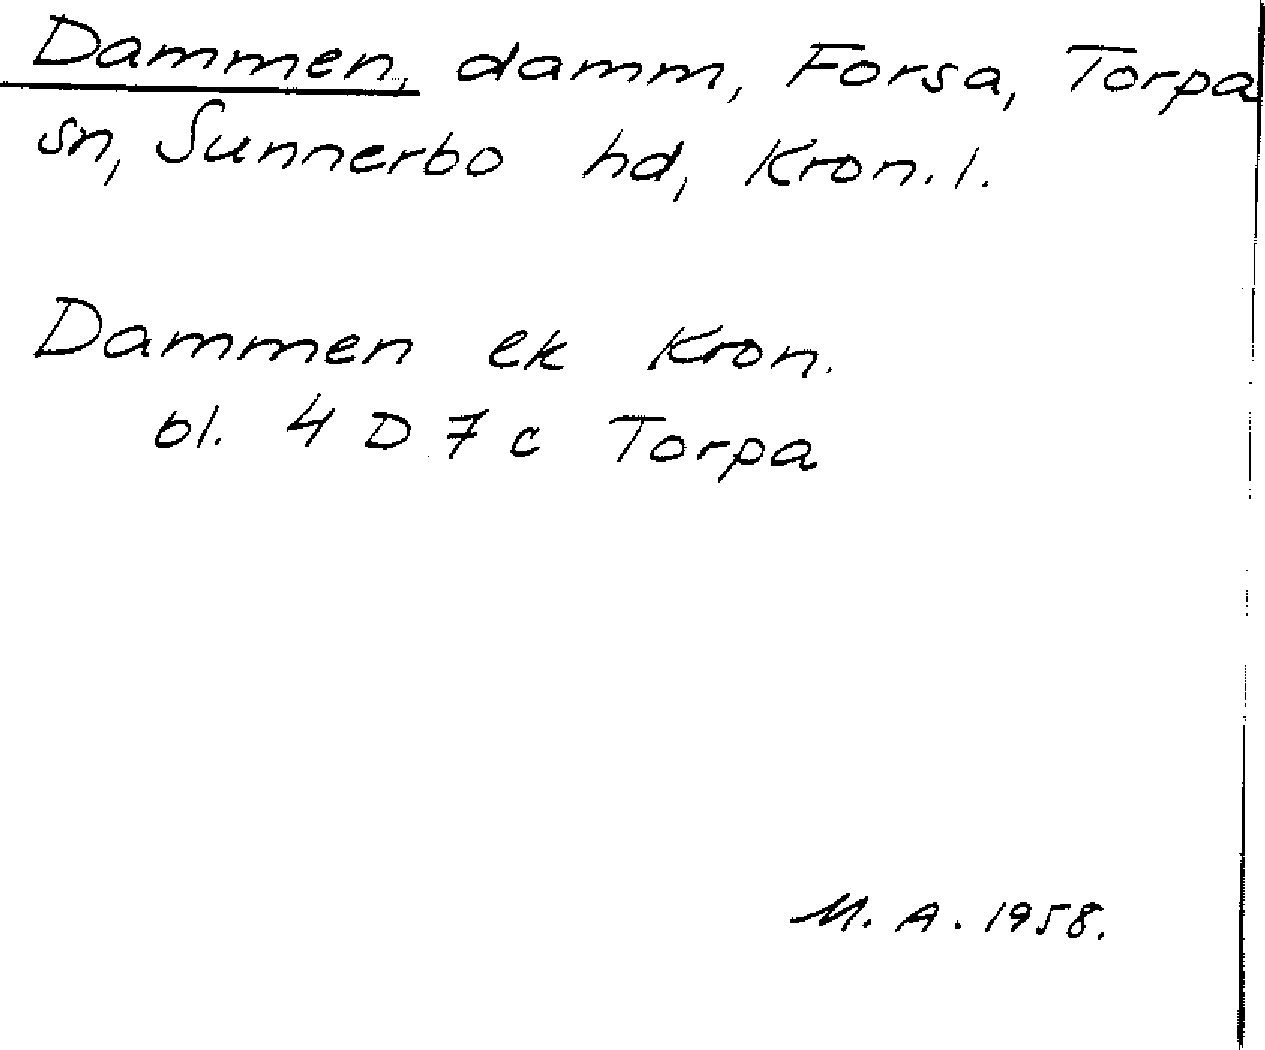 Dammen, damm, Forsa, Torpa
sn, Sunnerbo hd, Kron. l.
Dammen ek Kron.
bl. 4 D 7 c Torpa
M. A. 1958.